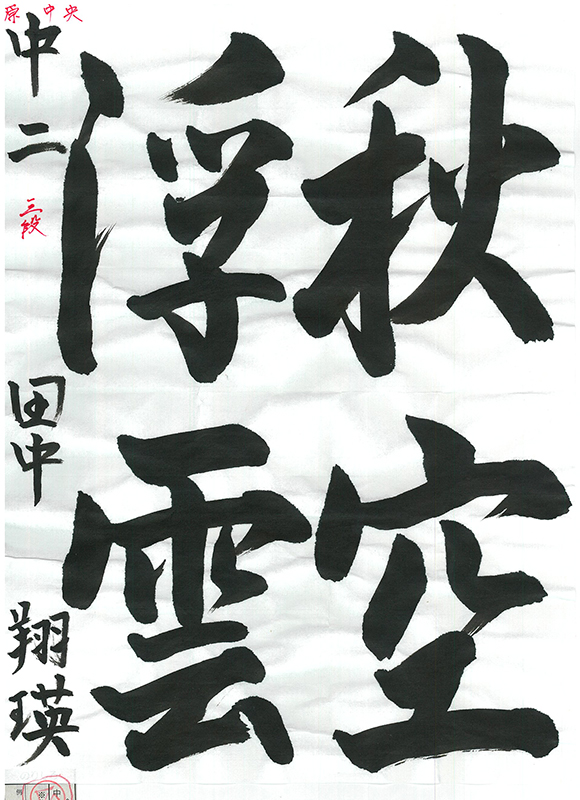 秋空
浮雲
原 中央
中二
三段
田中
翔瑛